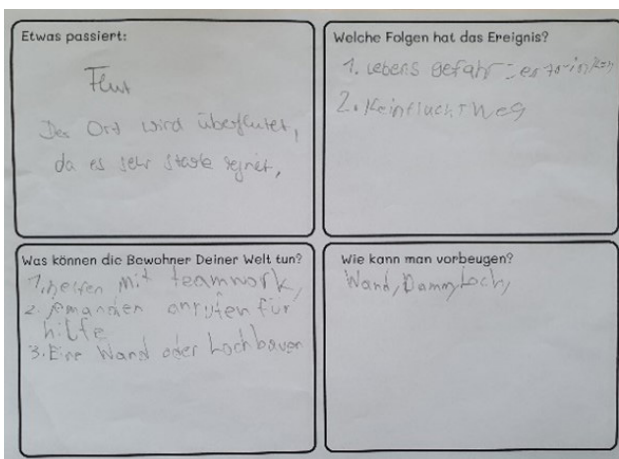 Etwas passiert:
Flut
Der Ort wird überflutet,
da es sehr stark regnet,
Welche Folgen hat das Ereignis?
1. lebens gefahr = ertrinken
2. Keinfluchtweg
Was können die Bewohner Deiner Welt tun?
1. helfen mit teamwork,
2. jemanden anrufen für
hilfe
3. Eine Wand oder Loch bauen
Wie kann man vorbeugen?
Wand, Damm, Loch,